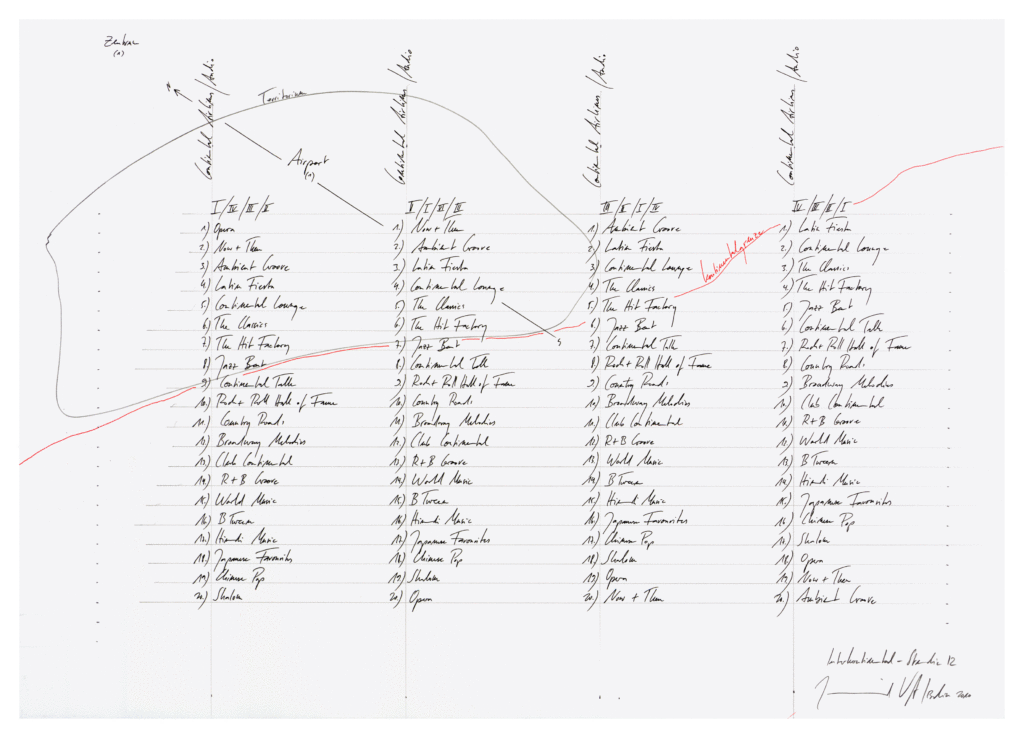 Zentrum
(1)
Territorium
Airport
(1)
Continental Airlines / Audio
I/IV/III/II
1) Opera
2) Now + Then
3) Ambient Groove
4) Latin Fiesta
5) Continental Lounge
6) The Classics
7) The Hit Factory
8) Jazz Beat
9) Continental Talk
10) Rock + Roll Hall of Fame
11) Country Roads
12) Broadway Melodies
13) Club Continental
14) R + B Groove
15) World Music
16) B Tween
17) Hindi Music
18) Japanese Favourites
19) Chinese Pop
20) Shalom
Continental Airlines / Audio
II/I/IV/III
1) Now + Then
2) Ambient Groove
3) Latin Fiesta
4) Continental Lounge
5) The Classics
6) The Hit Factory
7) Jazz Beat
8) Continental Talk
9) Rock + Roll Hall of Fame
10) Country Roads
11) Broadway Melodies
12) Club Continental
13) R + B Groove
14) World Music
15) B Tween
16) Hindi Music
17) Japanese Favourites
18) Chinese Pop
19) Shalom
20) Opera
Continental Airlines / Audio
III/II/I/IV
1) Ambient Groove
2) Latin Fiesta
3) Continental Lounge
4) The Classics
5) The Hit Factory
6) Jazz Beat
7) Continental Talk
8) Rock + Roll Hall of Fame
9) Country Roads
10) Broadway Melodies
11) Club Continental
12) R + B Groove
13) World Music
14) B Tween
15) Hindi Music
16) Japanese Favourites
17) Chinese Pop
18) Shalom
19) Opera
20) Now + Then
Kontinentalgrenze
Continental Airlines / Audio
IV/III/II/I
1) Latin Fiesta
2) Continental Lounge
3) The Classics
4) The Hit Factory
5) Jazz Beat
6) Continental Talk
7) Rock + Roll Hall of Fame
8) Country Roads
9) Broadway Melodies
10) Club Continental
11) R + B Groove
12) World Music
13) B Tween
14) Hindi Music
15) Japanese Favourites
16) Chinese Pop
17) Shalom
18) Opera
19) Now + Then
20) Ambient Groove
Interkontinental - Studie 12
Berlin 2010